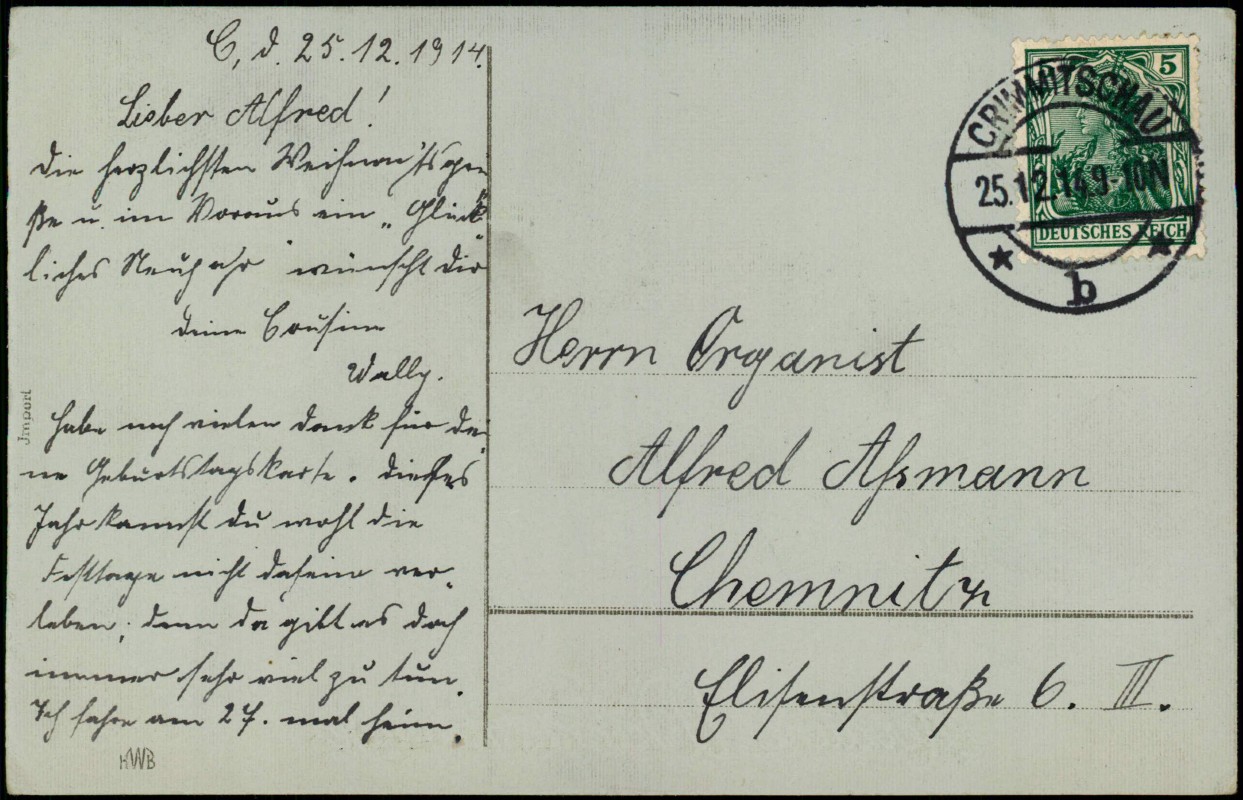 C, d. 25.12.1914.
Lieber Alfred!
die herzlichsten Weihnachtsgrü
ße u. im Voraus ein „Glück
liches Neujahr" wünscht dir
deine Cousine
Wally.
Habe noch vielen Dank für dei
ne Geburtstagskarte. Dieses
Jahr kannst du wohl die
Festtage nicht daheim ver„
leben, denn da gibt es doch
immer sehr viel zu tun.
Ich fahre am 27. mal heim.
Import
HWB
5
DEUTSCHES REICH
CRIMMITSCHAU
25.12.14 9-10N
b
Herrn Organist
Alfred Aßmann
Chemnitz
Elisenstraße 6. III.